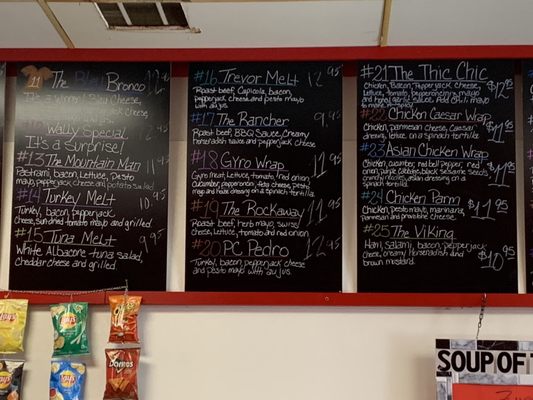 #11 The Blue Bronco
It's a winner! Bleu Cheese,
Wally Special
It's a surprise!
#13 The Mountain Man
Pastrami, bacon, Lettuce, Pesto
mayo, pepperjack cheese and potato salad
#14 Turkey Melt 10.95
Turkey, bacon, pepperjack
Cheese, sun dried tomato mayo and grilled
#15 Tuna Melt 9.95
White Albacore tuna salad,
cheddar cheese and grilled
#16 Trevor Melt 12.95
Roast beef, Capicola, bacon,
pepperjack cheese and pesto mayo
with au jus
#17 The Rancher 9.95
Roast beef, BBQ Sauce, Creamy
Horseradish sauce and pepperjack cheese
#18 Gyro Wrap 12.95
Gyro meat, Lettuce, tomato, red onion,
Cucumber, pepperoncini, feta cheese, pesto
mayo and made dressing on a spinach tortilla.
#19 The Rockaway 11.95
Roast beef, herb mayo, swiss
cheese, Lettuce, tomato and red onion
#20 PC Pedro 12.95
Turkey, bacon, pepperjack cheese
and pesto mayo with au jus
#21 The Thic Chic $12.95
Chicken, Bacon, Pepperjack Cheese,
#22 Chicken Caesar Wrap
Chicken, parmesan cheese, Caesar
dressing, lettuce, tomato on
spinach tortilla. $11.95
#23 Asian Chicken Wrap
Chicken, cucumber, red bell pepper, red
onion, purple cabbage, black sesame seeds
crunchy noodles, asian dressing on a
spinach tortilla. $11.95
#24 Chicken Parm
Chicken, pesto mayo, marinara,
Parmesan and provolone cheese. $11.95
#25 The Viking
Ham, salami, bacon, pepperjack
cheese, creamy horseradish and
brown mustard. $10.95
Lay's
Lay's
Doritos
Lay's
Lay's
SOUP OF T